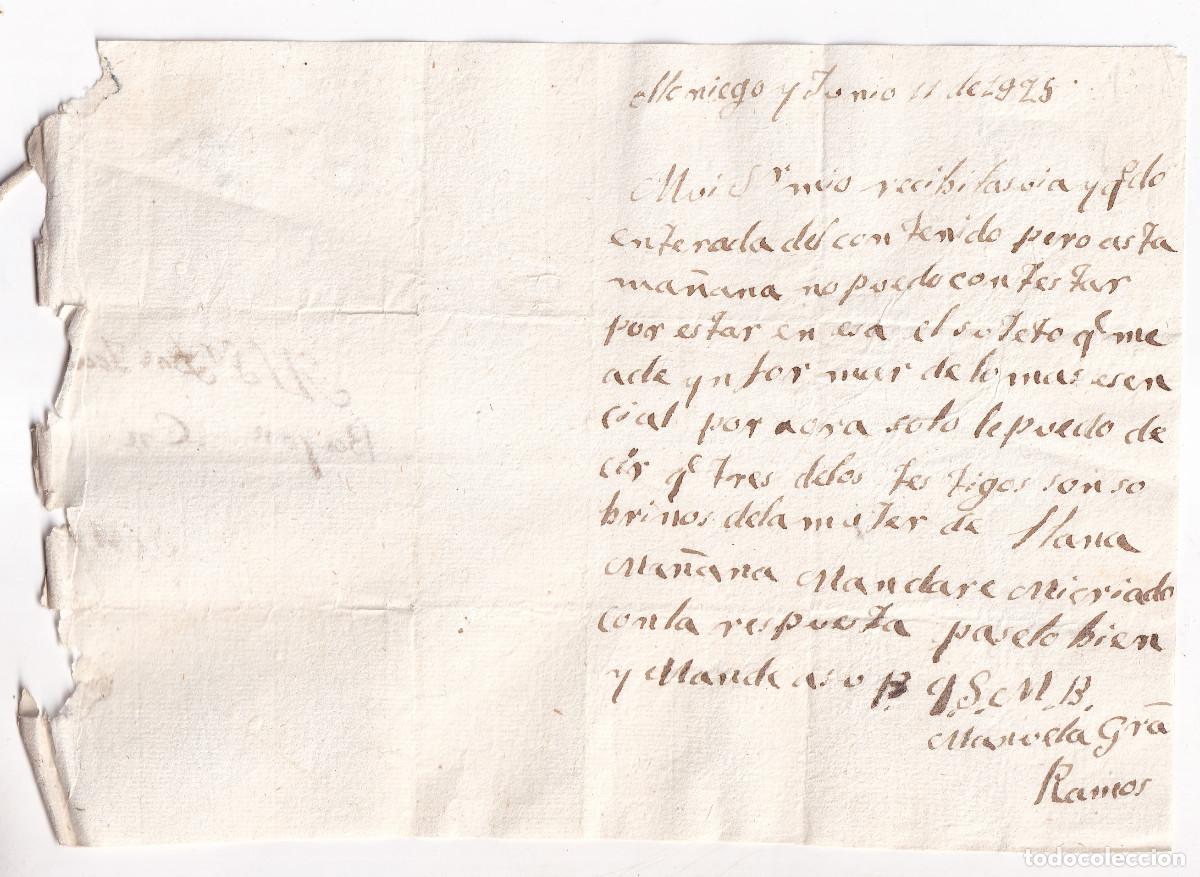 Moniego y Junio 11 de 1825
Mui Sr mio recibi lasuia y qdo
enterada del contenido pero asta
mañana no puedo contestar
por estar en esa el sugeto q me
ade ynformar de lo mas esen
cial por aora solo lepuedo de
cir q tres delos testigos son so
brinos dela muger de Llana
Mañana Mandare Micriado
conla respuesta paselo bien
y Mande asu q.S.M.B.
Manuela Gra
Ramos
todocoleccion